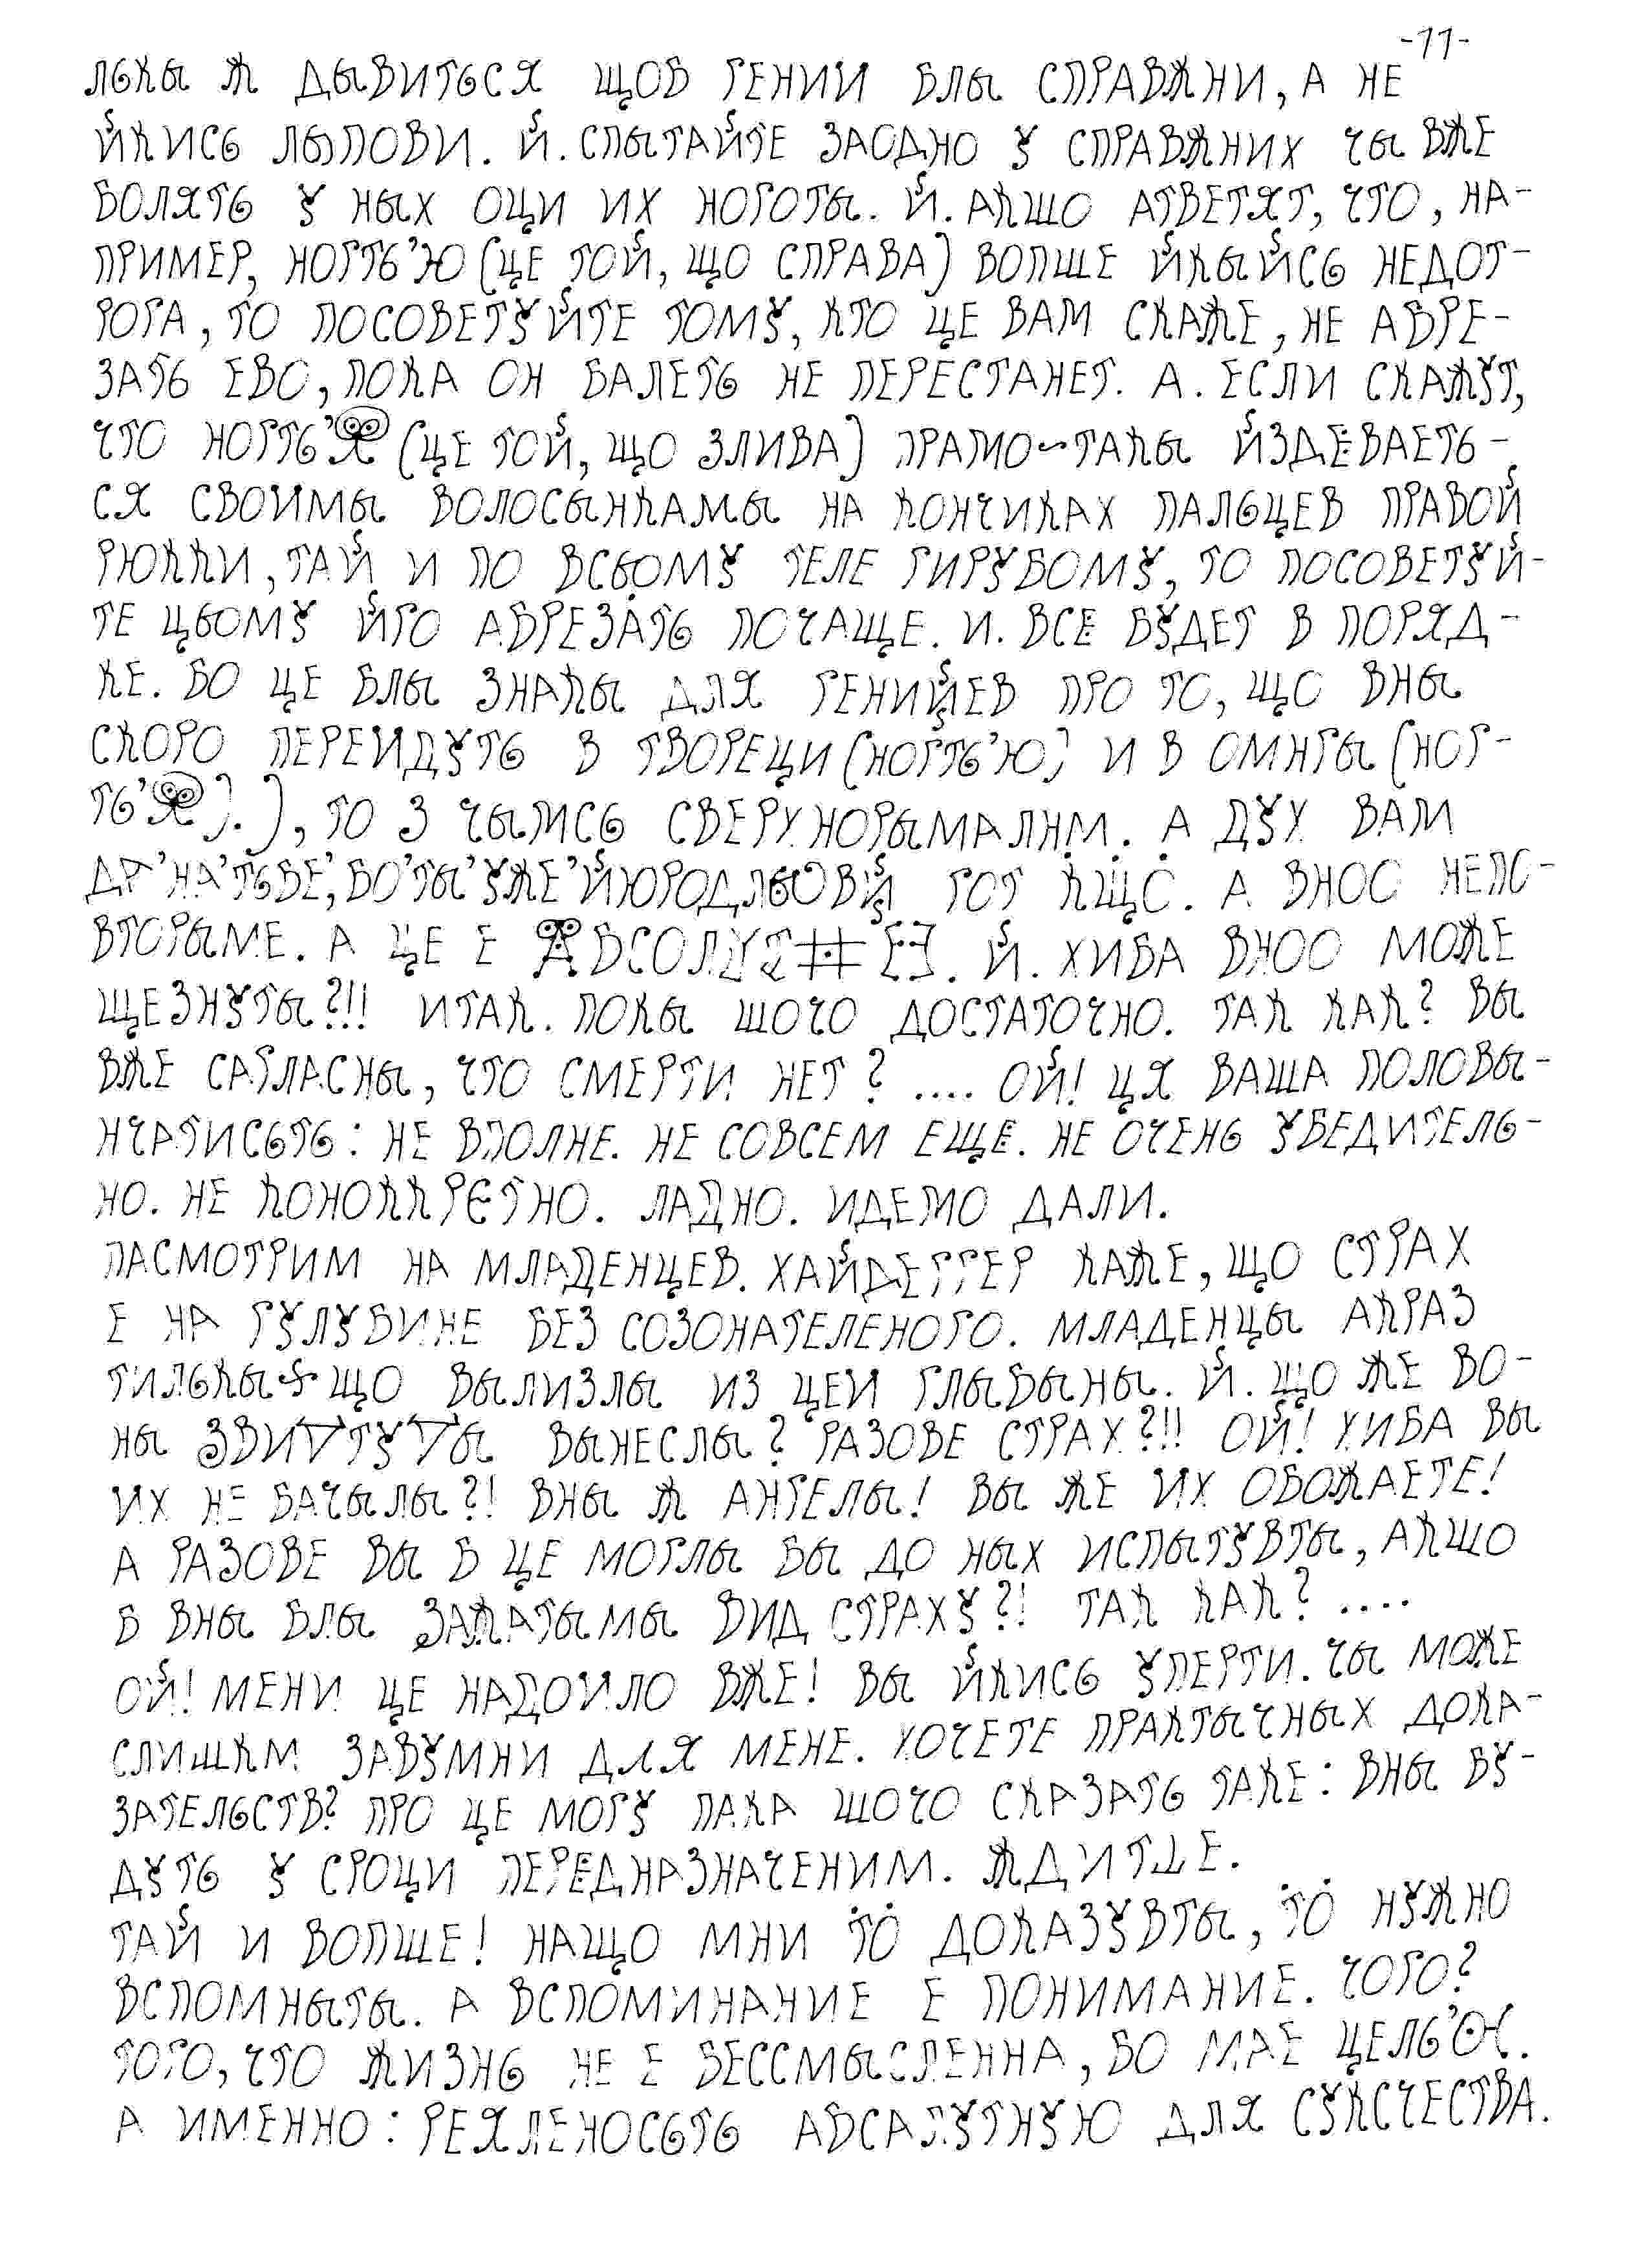 -11-
ЛЬКЫ Ж ДЫВИТЬСЯ ЩОБ ГЕНИИ БЛЫ СПРАВЖНИ, А НЕ
ЙКИСЬ ЛЫПОВИ. Й. СПЫТАЙТЕ ЗАОДНО У СПРАВЖНИХ ЧЫ ВЖЕ
БОЛЯТЬ У НЫХ ОЦИ ИХ НОГОТЫ. Й. АКШО АТВЕТЯТ, ЧТО, НА-
ПРИМЕР, НОГТЬ'Ю (ЦЕ ТОЙ, ЩО СПРАВА) ВОПШЕ ЙКЫЙСЬ НЕДОТ-
РОГА, ТО ПОСОВЕТУЙТЕ ТОМУ, КТО ЦЕ ВАМ СКАЖЕ, НЕ АБРЕ-
ЗАТЬ ЕВО, ПОКА ОН БАЛЕТЬ НЕ ПЕРЕСТАНЕТ. А. ЕСЛИ СКАЖУТ,
ЧТО НОГТЬ'Я (ЦЕ ТОЙ, ЩО ЗЛИВА) ПРАМО~ТАКЫ ЙЗДЁВАЕТЬ-
СЯ СВОИМЫ ВОЛОСЫНКАМЫ НА КОНЧИКАХ ПАЛЬЦЕВ ПРАВОЙ
РЮККИ, ТАЙ И ПО ВСЬОМУ ТЕЛЕ ГИРУБОМУ, ТО ПОСОВЕТУЙ-
ТЕ ЦЬОМУ ЙГО АБРЕЗАТЬ ПОЧАЩЕ. И. ВСЁ БУДЕТ В ПОРЯД-
КЕ. БО ЦЕ БЛЫ ЗНАКЫ ДЛЯ ГЕНИЙЕВ ПРО ТО, ЩО ВНЫ
СКОРО ПЕРЕИДУТЬ В ТВОРЕЦИ (НОГТЬ'Ю) И В ОМНГЫ (НОГ-
ТЬ'Я).), ТО З ЧЫМСЬ СВЕРХ НОРЫМАЛНМ. А ДУХ ВАМ
ДР'НА'ТЬБЕ', БО'ТЫ'УЖЕ'ЙЮРОДЛЬОВЙ ТОТ КЩО. А ВНОО НЕПО-
ВТОРЫМЕ. А ЦЕ Е АБСОЛУТ#ЕЭ. Й. ХИБА ВНОО МОЖЕ
ЩЕЗНУТЫ?!! ИТАК. ПОКЫ ШОЧО ДОСТАТОЧНО. ТАК КАК? ВЫ
ВЖЕ САГЛАСНЫ, ЧТО СМЕРТИ НЕТ? .... ОЙ! ЦЯ ВАША ПОЛОВЫ-
НЧАТИСЬТЬ: НЕ ВПОЛНЕ. НЕ СОВСЕМ ЕЩЕ. НЕ ОЧЕНЬ УБЕДИТЕЛЬ-
НО. НЕ КОНОККРЄТНО. ЛАДНО. ИДЕМО ДАЛИ.
ПАСМОТРИМ НА МЛАДЕНЦЕВ. ХАЙДЕГГЕР КАЖЕ, ЩО СТРАХ
Е НА ГУЛУБИНЕ БЕЗ СОЗОНАТЕЛЕНОГО. МЛАДЕНЦЫ АКРАЗ
ТИЛЬКЫ ЩО ВЫЛИЗЛЫ ИЗ ЦЕИ ГЛЫБЫНЫ. Й. ЩО ЖЕ ВО-
НЫ ВЫНЕСЛЫ? РАЗОВЕ СТРАХ?!! ОЙ! ХИБА ВЫ
ИХ НЕ БАЧЫЛЫ?! ВНЫ Ж АНГЕЛЫ! ВЫ ЖЕ ИХ ОБОЖАЕТЕ!
А РАЗОВЕ ВЫ Б ЦЕ МОГЛЫ БЫ ДО НЫХ ИСПЫТУВТЫ, АКШО
Б ВНЫ БЛЫ ЗАЖАТЫМЫ ВИД СТРАХУ?! ТАК КАК? ....
ОЙ! МЕНИ ЦЕ НАДОИЛО ВЖЕ! ВЫ ЙКИСЬ УПЕРТИ. ЧЫ МОЖЕ
СЛИШКМ ЗАВУМНИ ДЛЯ МЕНЕ. ХОЧЕТЕ ПРАКТЫЧНЫХ ДОКА-
ЗАТЕЛЬСТВ? ПРО ЦЕ МОГУ ПАКА ШОЧО СКАЗАТЬ ТАКЕ: ВНЫ БУ-
ДУТЬ У СРОЦИ ПЕРЕДНАЗНАЧЕНИМ. ЖДИТЕ.
ТАЙ И ВОПШЕ! НАЩО МНИ ТО ДОКАЗУВТЫ, ТО НУЖНО
ВСПОМНЫТЫ. А ВСПОМИНАНИЕ Е ПОНИМАНИЕ. ЧОГО?
ТОГО, ЧТО ЖИЗНЬ НЕ Е БЕССМЫСЛЕННА, БО МАЕ ЦЕЛЬ'.
А ИМЕННО: РЕЯЛЕНОСЬТЬ АБСАЛУТНУЮ ДЛЯ СУКСЧЕСТВА.